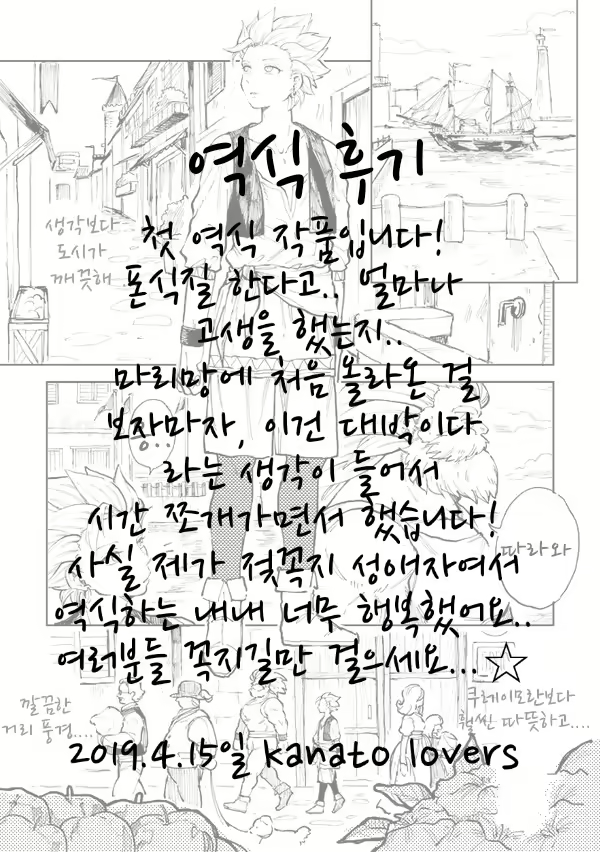 역식 후기
첫 역식 작품입니다!
폰식질 한다고.. 얼마나
고생을 했는지..
마리망에 처음 올라온 걸
보자마자, 이건 대박이다
라는 생각이 들어서
시간 쪼개가면서 했습니다!
사실 제가 젖꼭지 성애자여서
역식하는 내내 너무 행복했어요..
여러분들 꼭지길만 걸으세요...☆
2019.4.15일 kanato lovers
생각보다
도시가
깨끗해
0...
따라와
깔끔한
거리 풍경....
쿠레이모란보다
훨씬 따뜻하고....